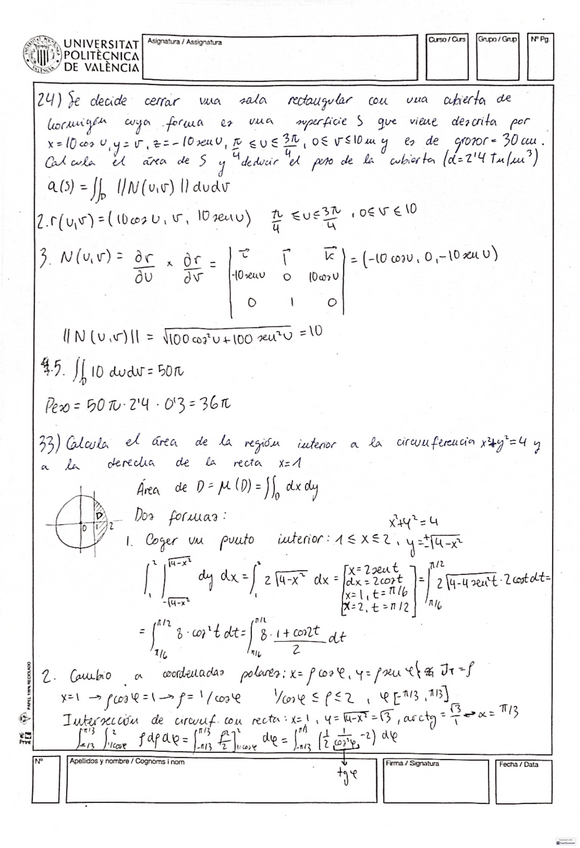 UNIVERSITAT
POLITÈCNICA
DE VALÈNCIA
Asignatura / Assignatura
Curso / Curs
Grupo / Grup
Nº Pg.
24) Se decide cerrar una sala rectangular con una cubierta de
hormigón cuya forma es una superficie S que viene descrita por
x=10 cos u, y=v, z=-10 sen u, π/4 ≤ u ≤ 3π/4, 0≤v≤10 m y es de grosor = 30 cm.
Calcula el área de S y deducir el peso de la cubierta (d=2'4 Tn/m³)
a(S) = ∬_D ||N(u,v)|| du dv
2. r(u,v) = (10 cos u, v, 10 sen u) π/4 ≤ u ≤ 3π/4, 0 ≤ v ≤ 10
3. N(u,v) = ∂r/∂u × ∂r/∂v = | i j k ; -10 sen u 0 10 cos u ; 0 1 0 | = (-10 cos u, 0, -10 sen u)
||N(u,v)|| = √(100 cos² u + 100 sen² u) = 10
4.5. ∬_D 10 du dv = 50π
Peso = 50π · 2'4 · 0'3 = 36π
33) Calcula el área de la región interior a la circunferencia x²+y²=4 y
a la derecha de la recta x=1
Área de D = μ(D) = ∬_D dx dy
D
0 1 2
Dos formas:
x²+y²=4
1. Coger un punto interior: 1 ≤ x ≤ 2, y=±√(4-x²)
∫_1^2 ∫_{-√(4-x²)}^{√(4-x²)} dy dx = ∫_1^2 2√(4-x²) dx = [x=2 sen t ; dx=2 cos t ; x=1, t=π/6 ; x=2, t=π/2] = ∫_{π/6}^{π/2} 2√(4-4 sen² t) · 2 cos t dt =
= ∫_{π/6}^{π/2} 8 · cos² t dt = ∫_{π/6}^{π/2} 8 · (1+cos 2t)/2 dt
2. Cambio a coordenadas polares: x=ρ cos φ, y=ρ sen φ} JT=ρ
x=1 → ρ cos φ=1 → ρ=1/cos φ 1/cos φ ≤ ρ ≤ 2, φ[-π/3, π/3]
Intersección de circunf. con recta: x=1, y=√(4-x²)=√3, arctg = √3/1 ↔ α=π/3
∫_{-π/3}^{π/3} ∫_{1/cos φ}^2 ρ dρ dφ = ∫_{-π/3}^{π/3} [ρ²/2]_{1/cos φ}^2 dφ = ∫_{-π/3}^{π/3} (1/2 · 1/cos² φ - 2) dφ
tg φ
PAPEL 100% RECICLADO
Nº
Apellidos y nombre / Cognoms i nom
Firma / Signatura
Fecha / Data